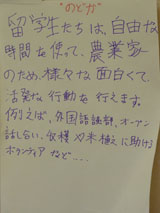 のどか
留学生たちは、自由な
時間を使って、農業家
のため、様々な面白くて、
活発な行動を行えます。
例えば、外国語練習、オープン
話し合い、収穫や米植に助ける
ボランティアなど……